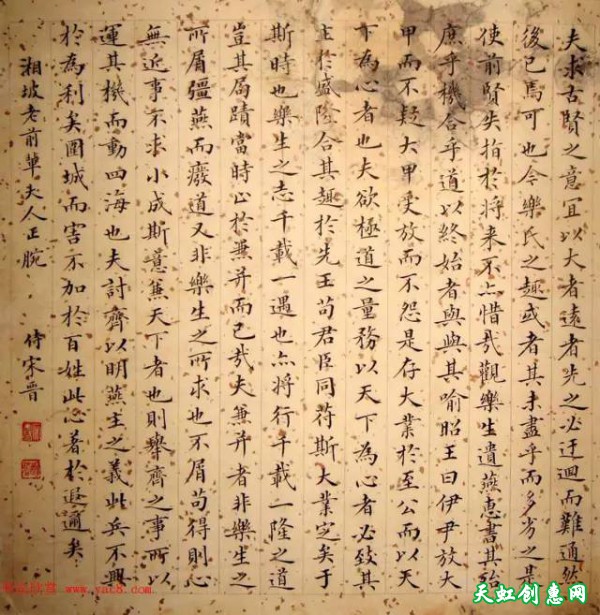 夫求古賢之意宜以大者遠者先之必迂迴而難通然
後已焉可也今樂氏之趣或者其未盡乎而多劣之是
使前賢失指於将来不亦惜哉觀樂生遺燕惠書其殆
庶乎機合乎道以終始者與與其喻昭王曰伊尹放大
甲而不疑大甲受放而不怨是存大業於至公而以天
下為心者也夫欲極道之量務以天下為心者必致其
主於盛隆合其趣於先王苟君臣同苻斯大業定矣于
斯時也樂生之志千載一遇也亦將行千載一隆之道
豈其局蹟當時止於兼并而已哉夫兼并者非樂生之
所屑彊燕而廢道又非樂生之所求也不屑苟得則心
無近事不求小成斯意兼天下者也則舉齊之事所以
運其機而動四海也夫討齊以明燕主之義此兵不興
於為利矣圍城而害不加於百姓此心著於遐邇矣
湘坡老前輩夫人正腕 侍宋晋
www.yac8.com
天虹创惠网